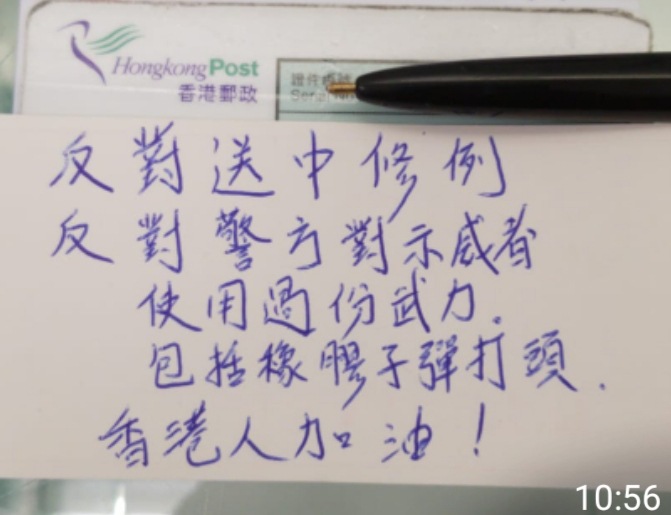 HongkongPost
香港郵政
證件
Serial No
反對送中修例
反對警方對示威者
使用過份武力.
包括橡膠子彈打頭.
香港人加油！
10:56